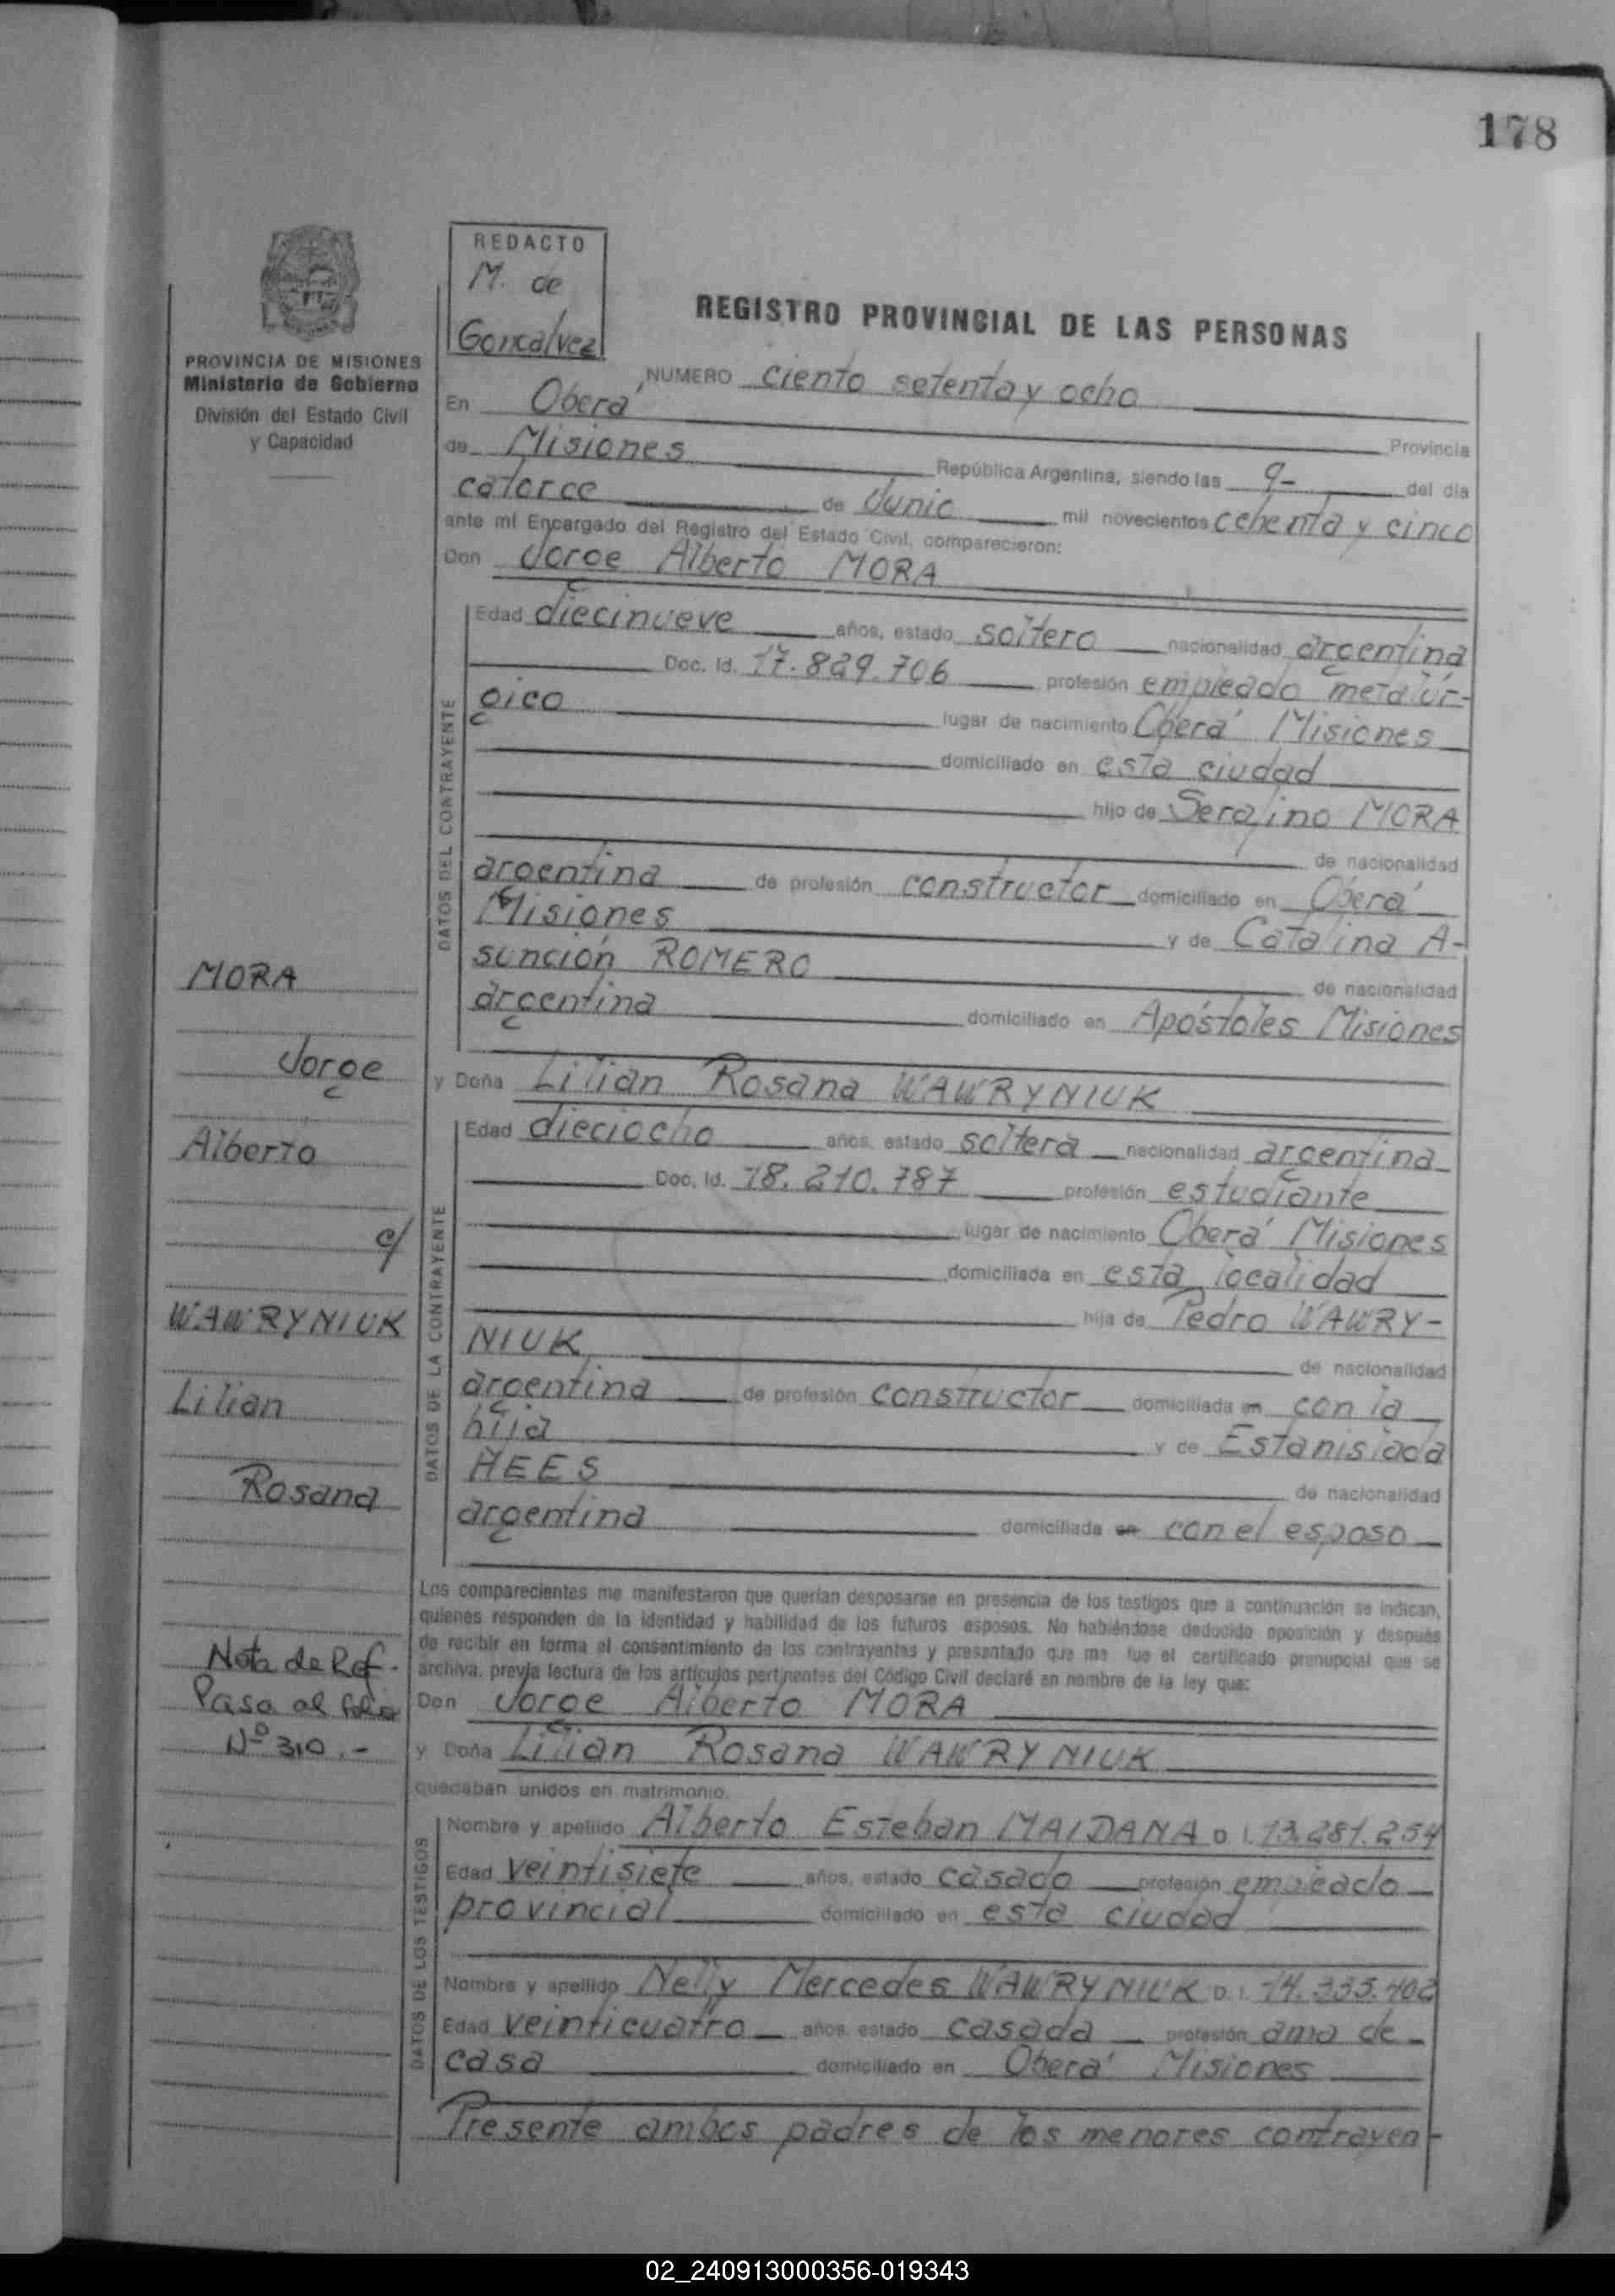 178
PROVINCIA DE MISIONES
Ministerio de Gobierno
División del Estado Civil
y Capacidad
REDACTO
M. de
Goncalvez
REGISTRO PROVINCIAL DE LAS PERSONAS
NUMERO ciento setenta y ocho
En Oberá Provincia
de Misiones República Argentina, siendo las 9- del día
catorce de Junio mil novecientos ochenta y cinco
ante mí Encargado del Registro del Estado Civil, comparecieron:
Don Jorge Alberto MORA
DATOS DEL CONTRAYENTE
Edad diecinueve años, estado soltero nacionalidad argentina
Doc. Id. 17.829.706 profesión empleado metalúr-
gico lugar de nacimiento Oberá Misiones
domiciliado en esta ciudad
hijo de Serafino MORA
de nacionalidad
argentina de profesión constructor domiciliado en Oberá
Misiones y de Catalina A-
sunción ROMERO de nacionalidad
argentina domiciliado en Apóstoles Misiones
y Doña Lilian Rosana WAWRYNIUK
DATOS DE LA CONTRAYENTE
Edad dieciocho años, estado soltera nacionalidad argentina
Doc. Id. 18.210.787 profesión estudiante
lugar de nacimiento Oberá Misiones
domiciliada en esta localidad
hija de Pedro WAWRY-
NIUK de nacionalidad
argentina de profesión constructor domiciliada en con la
hija y de Estanislada
HEES de nacionalidad
argentina domiciliada en con el esposo
MORA
Jorge
Alberto
c/
WAWRYNIUK
Lilian
Rosana
Nota de Ref.-
Pasa al folio
Nº 310.-
Los comparecientes me manifestaron que querían desposarse en presencia de los testigos que a continuación se indican,
quienes responden de la identidad y habilidad de los futuros esposos. No habiéndose deducido oposición y después
de recibir en forma el consentimiento de los contrayentes y presentado que me fue el certificado prenupcial que se
archiva, previa lectura de los artículos pertinentes del Código Civil declaré en nombre de la ley que:
Don Jorge Alberto MORA
y Doña Lilian Rosana WAWRYNIUK
quedaban unidos en matrimonio.
DATOS DE LOS TESTIGOS
Nombre y apellido Alberto Esteban MAIDANA D. I. 13.281.254
Edad veintisiete años, estado casado profesión empleado
provincial domiciliado en esta ciudad
Nombre y apellido Nelly Mercedes WAWRYNIUK D. I. 14.335.402
Edad veinticuatro años, estado casada profesión ama de
casa domiciliado en Oberá Misiones
Presente ambos padres de los menores contrayen-
02_240913000356-019343